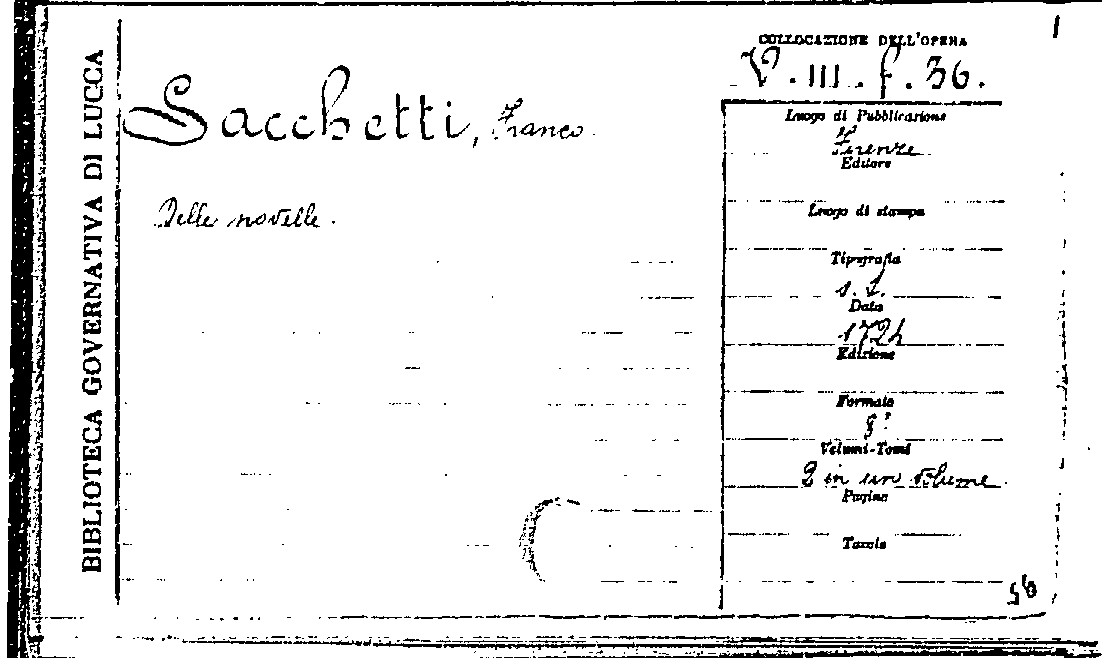 BIBLIOTECA GOVERNATIVA DI LUCCA
Sacchetti, Franco.
Delle novelle.
COLLOCAZIONE DELL'OPERA
V. III. f. 36.
Luogo di Pubblicazione
Firenze
Editore
Luogo di stampa
Tipografia
Data
1724
Edizione
Formato
8°
Volumi-Tomi
2 in un volume
Pagine
Tavole